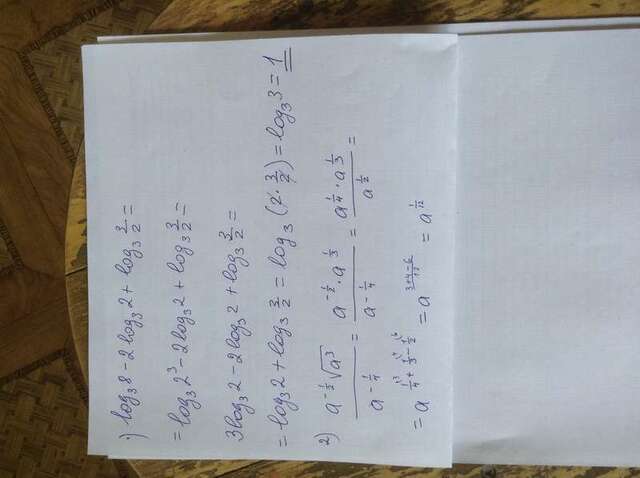 1) log₃8 - 2log₃2 + log₃ 3/2 =
= log₃2³ - 2log₃2 + log₃ 3/2 =
3log₃2 - 2log₃2 + log₃ 3/2 =
= log₃2 + log₃ 3/2 = log₃ (2 · 3/2) = log₃3 = 1
2) (a^(-1/2) √a³) / a^(-1/4) = (a^(-1/2) · a^(1/3)) / a^(-1/4) = (a^(1/4) · a^(1/3)) / a^(1/2) =
= a^(1\3/4 + 1\4/3 - 1\6/2) = a^((3+4-6)/12) = a^(1/12)